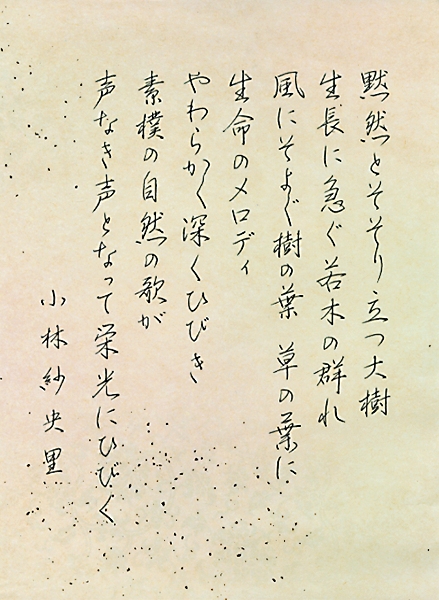 黙然とそそり立つ大樹
生長に急ぐ若木の群れ
風にそよぐ樹の葉 草の葉に
生命のメロディ
やわらかく深くひびき
素樸の自然の歌が
声なき声となって栄光にひびく
小林紗央里